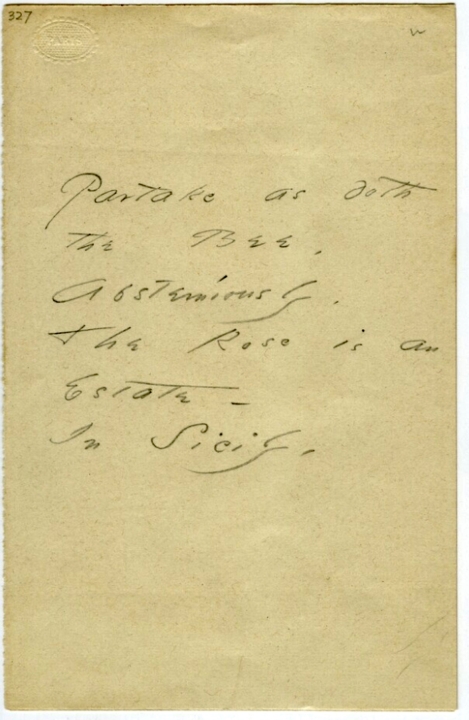 327
PARIS
Partake as doth
the Bee,
Abstemiously.
The Rose is an
Estate –
In Sicily.